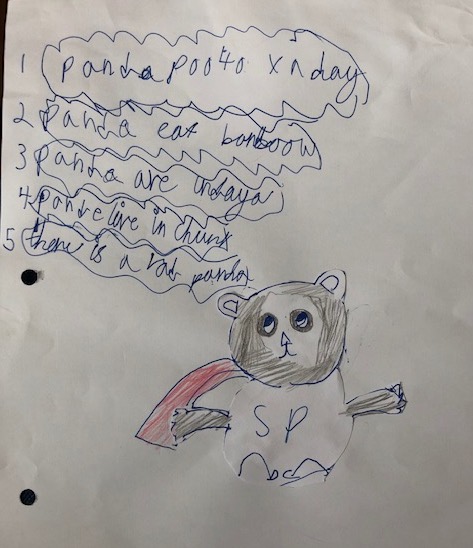 1 panda poo 40 x n day
2 panda eat bonboow
3 panda are indaya
4 pande live in
5 there is a rad panda
SP